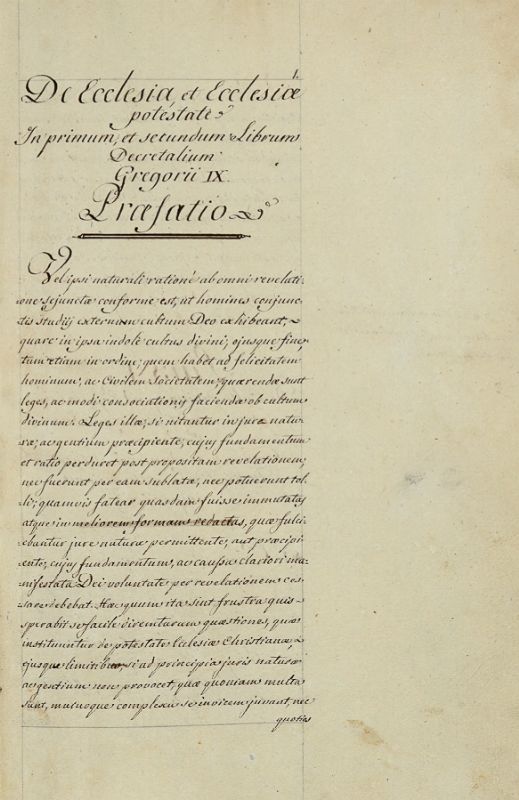 1.
De Ecclesia, et Ecclesiæ
potestate
In primum, et secundum Librum
Decretalium
Gregorii IX.
Præfatio
Vel ipsi naturali rationi ab omni revelati-
one sejunctæ conforme est, ut homines conjunc-
tis studiis externum cultum Deo exhibeant,
quare in ipsa indole cultus divini, ejusque fine,
tum etiam in ordine, quem habet ad felicitatem
hominum, ac Civilem Societatem, quærendæ sunt
leges, ac modi consociationis faciendæ ob cultum
divinum. Leges illæ, si nitantur in jure natu-
ræ, ac gentium præcipiente, cujus fundamentum
et ratio perduret post propositam revelationem,
nec fuerunt per eam sublatæ, nec potuerunt tol-
li; quamvis fatear quasdam fuisse immutatas
atque in meliorem formam redactas, quæ fulci-
ebantur jure naturæ permittente, aut præcipi-
ente, cujus fundamentum, ac caussa clariori ma-
nifestata Dei voluntate per revelationem ces-
sare debebat. Hæc quum ita sint frustra quis
sperabit se facile diremturum quæstiones, quæ
instituuntur de potestate Ecclesiæ Christianæ,
ejusque limitibus, si ad principia juris naturæ
ac gentium non provocet, quæ quoniam multa
sunt, mutuoque complexu se invicem juvant, nec
quoties